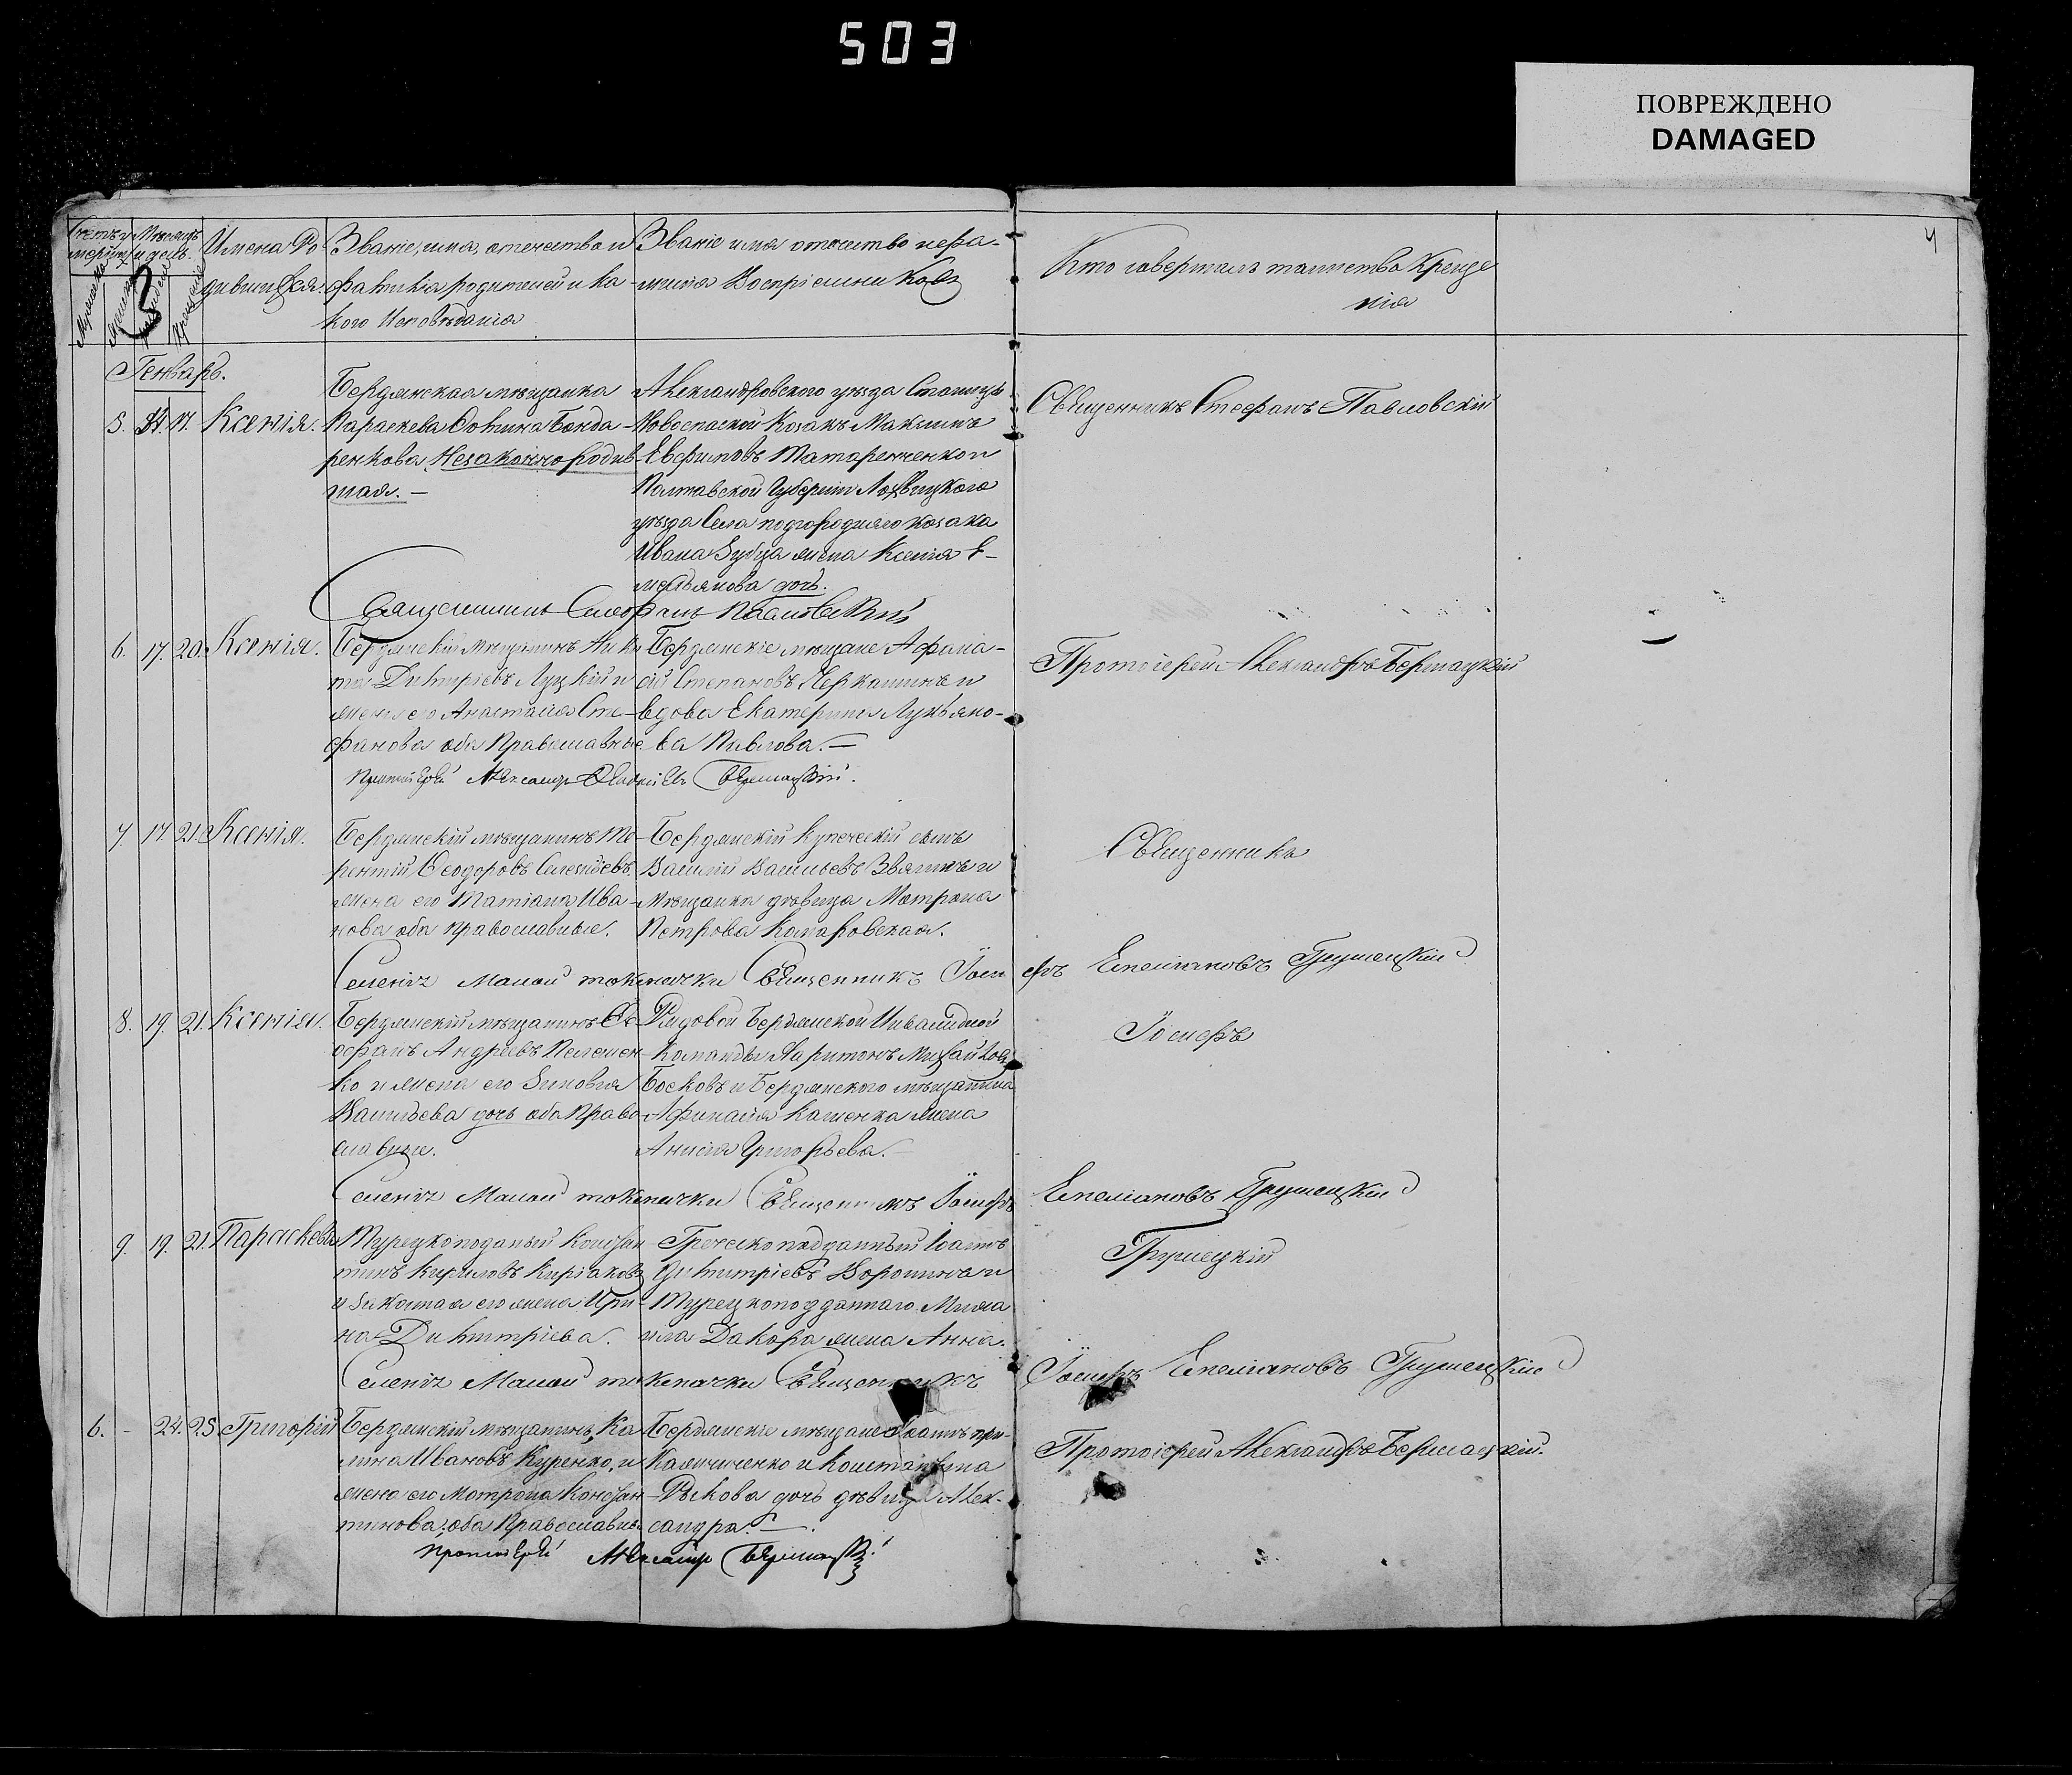 503
ПОВРЕЖДЕНО
DAMAGED
4
Счетъ
Мѣсяцъ
и день.
Имена Ро
дившихся.
Званіе, имя, отечество и
фамилія родителей и ка
кого Исповѣданія
Званіе имя отечество и фа-
милія Воспріемниковъ
Кто совершалъ таинство Креще
нія
Генварь.
5. 14. 17. Ксенія.
Бердянская мѣщанка
Параскева Фомина Бонда-
ренкова, Незаконнорожд
ная. —
Александровского уѣзда Станицы
Новоспаской Козакъ Максимъ
Евфимовъ Татаренченко и
Полтавской Губерніи Лохвицкого
уѣзда Села подгороднаго козака
Ивана Зубца жена Ксенія Е-
мельянова дочь.
Священникъ Стефанъ Павловскій
Священникъ Стефанъ Павловскій
6. 17. 20. Ксенія.
Бердянскій мѣщанинъ Ники
та Димитріевъ Луцкій и
жена его Анастасія Сте-
фанова оба Православные
Бердянскіе мѣщане Афана-
сій Степановъ Черкашинъ и
вдова Екатерина Лукьяно-
ва Павлова. —
Протоіерей Александръ Бершацкій
Протоіерей Александръ Бершацкій.
7. 17. 21. Ксенія.
Бердянскій мѣщанинъ Те-
рентій Феодоровъ
жена его Татіана Ива-
нова оба православные.
Бердянскій Купеческій сынъ
Василій Васильевъ Звягинъ и
мѣщанка дѣвица Матрона
Петрова Комаровская.
Священникъ
Священникъ Іосифъ Емеліановъ Грушецкій
8. 19. 21. Ксенія.
Бердянскій мѣщанинъ Фе-
офанъ Андреевъ Пелемен
ко и жена его Зиновія
Васильева дочь оба Право
славные.
Рядовой Бердянской Инвалидной
Команды Харитонъ Михайловъ
Босковъ и Бердянского мѣщанина
Афанасія Кащенка жена
Анисія Григорьева. —
Іосифъ
Священникъ Іосифъ Емеліановъ Грушецкій
9. 19. 21. Параскева
Турецкоподаный Констан
тинъ Кириловъ Киріаковъ
и законная его жена Ири-
на Димитріева.
Греческоподданный Іоаннъ
Димитріевъ Воронина и
Турецкоподданнаго Михаи
ила Дакора жена Анна.
Грушецкій
Священникъ Іосифъ Емеліановъ Грушецкій
6. - 24. 25. Григорій
Бердянскій мѣщанинъ, Ка
лина Ивановъ Куренко, и
жена его Матрона Констан
тинова, оба Православные
Бердянскіе мѣщане
Калиниченко и Константина
Рыкова дочь дѣвица Алек-
сандра. —.
Протоіерей Александръ Бершацкій.
Протоіерей Александръ Бершацкій